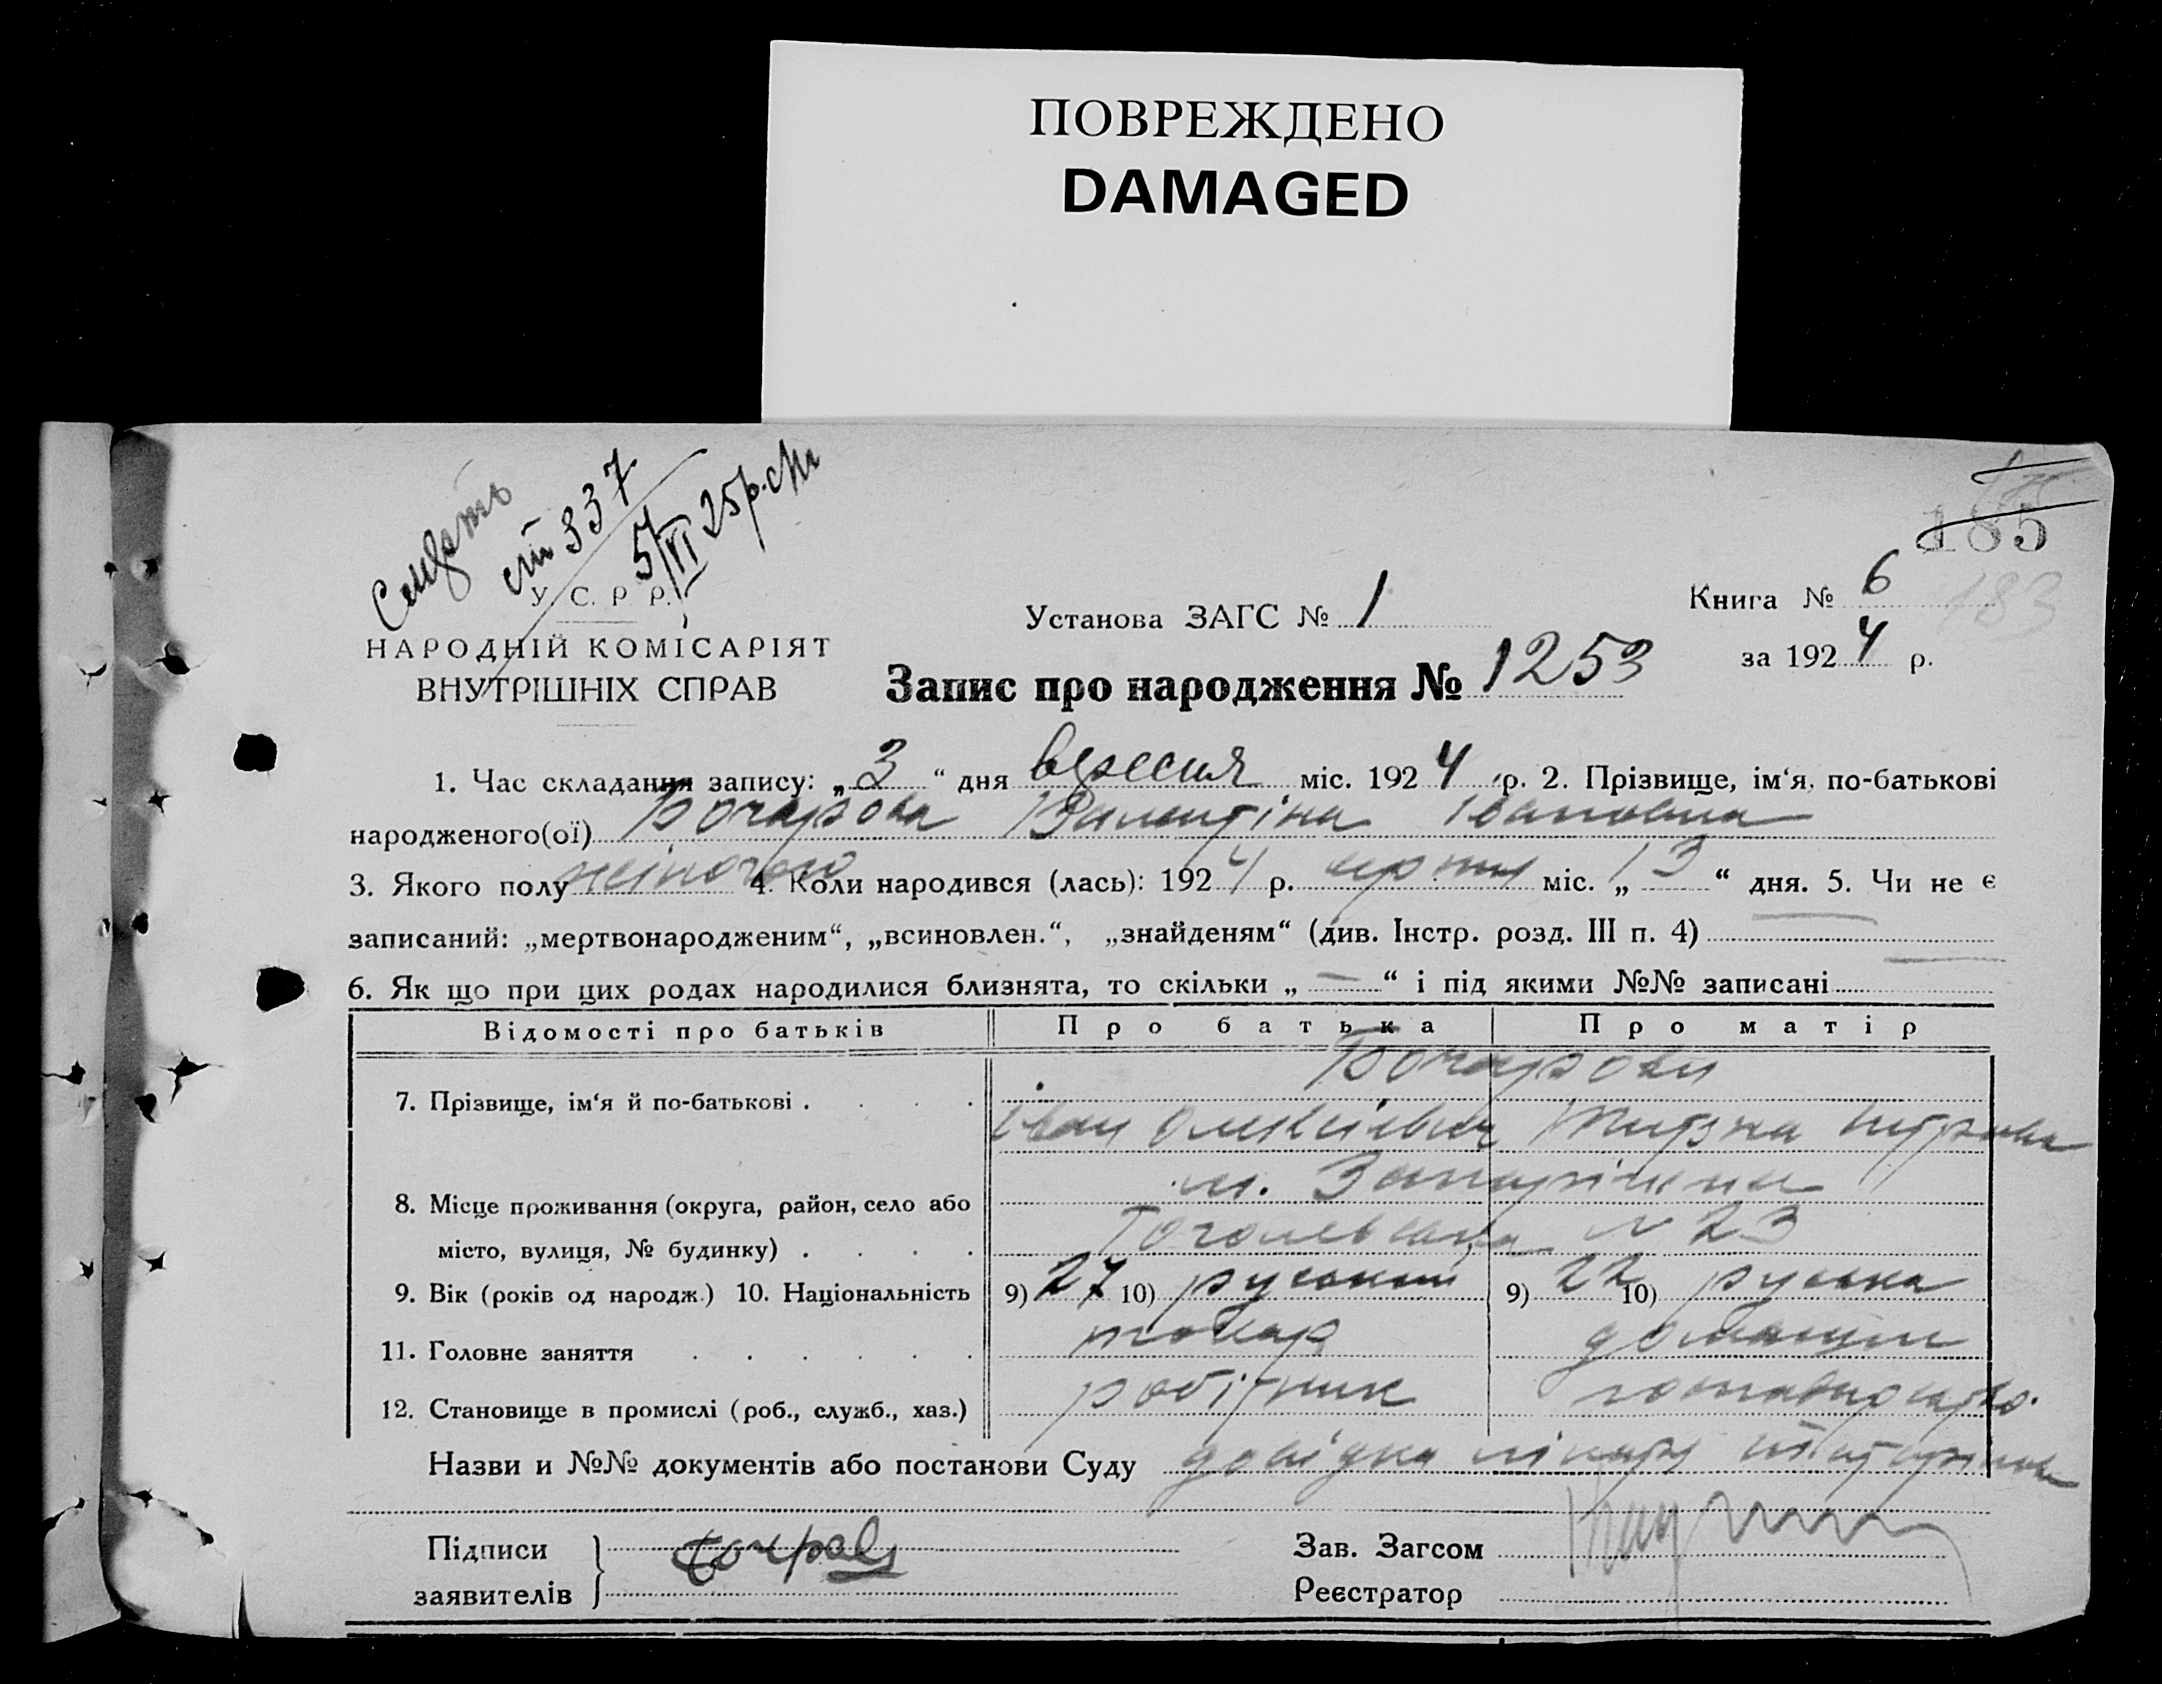 ПОВРЕЖДЕНО
DAMAGED
185
183
Смерть
ст 337
5/VI 25р.
У. С. Р. Р.
НАРОДНІЙ КОМІСАРІЯТ
ВНУТРІШНІХ СПРАВ
Установа ЗАГС № 1
Книга № 6
за 1924 р.
Запис про народження № 1253
1. Час складання запису: „3“ дня вересня міс. 1924 р. 2. Прізвище, ім‘я, по-батькові
народженого(ої) Бочарова Валентіна Івановна
3. Якого полу жіночого 4. Коли народився (лась): 1924 р. серпня міс. „13“ дня. 5. Чи не є
записаний: „мертвонародженим“, „всиновлен.“, „знайденям“ (див. Інстр. розд. III п. 4)
6. Як що при цих родах народилися близнята, то скільки „—“ і під якими №№ записані
Відомості про батьків Про батька Про матір
Бочарови
7. Прізвище, ім‘я й по-батькові
Іван Олексієвич
8. Місце проживання (округа, район, село або
м. Запоріжжя
місто, вулиця, № будинку)
Гоголевська № 23
9. Вік (років од народж.) 10. Національність 9) 27 10) руський 9) 22 10) руська
11. Головне заняття токар домашнє
12. Становище в промислі (роб., служб., хаз.) робітник господарство
Назви и №№ документів або постанови Суду довідка лікаря
Підписи
заявителів
Зав. Загсом
Реєстратор